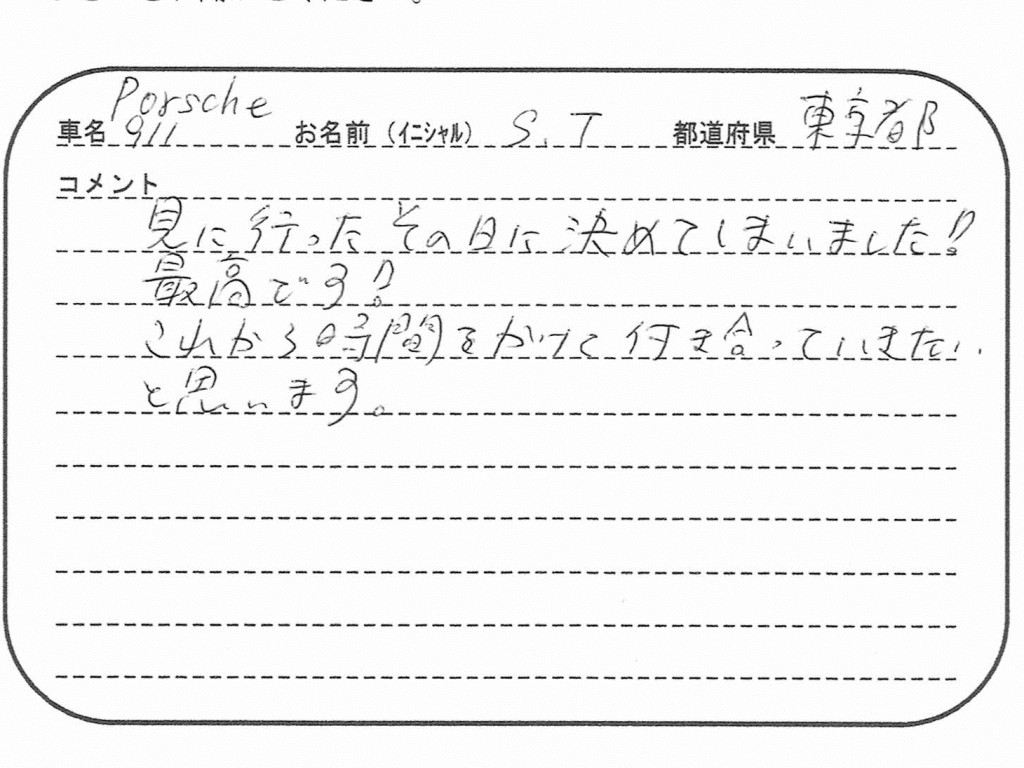 Porsche
車名 911 お名前（イニシャル） S.T 都道府県 東京都
コメント
見に行ったその日に決めてしまいました!
最高です!
これから時間をかけて付き合っていきたい
と思います。